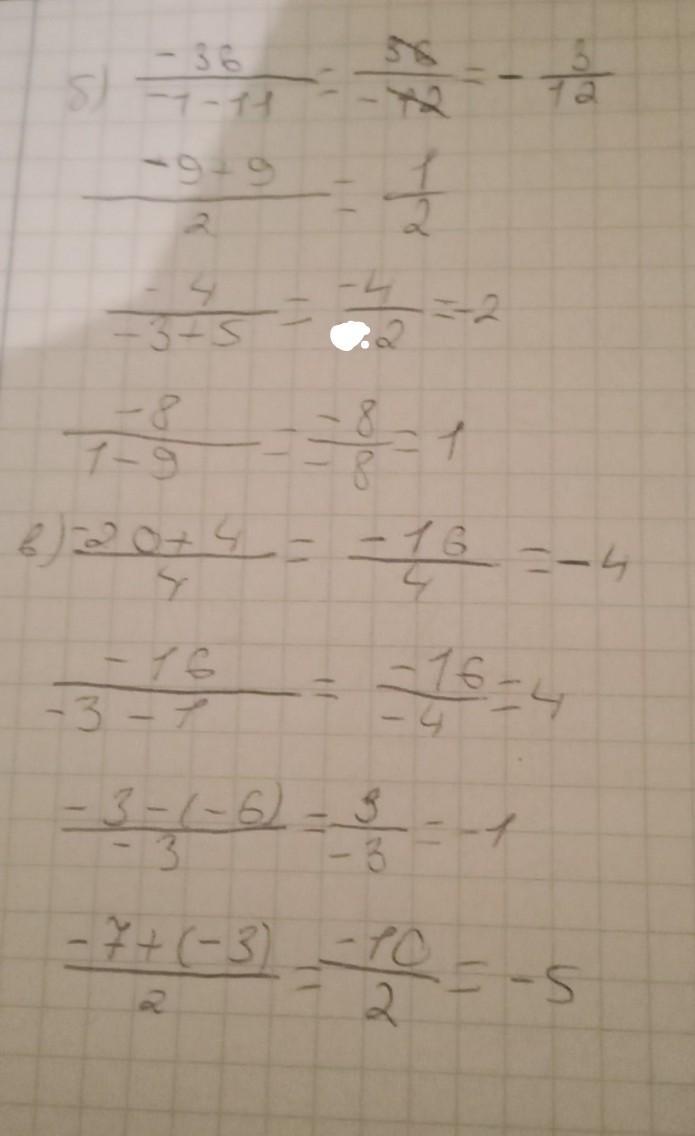 б) -36/-1-11 = 36/-12 = - 3/12
-9+9/2 = 1/2
-4/-3+5 = -4/2 = -2
-8/1-9 = -8/-8 = 1
в) -20+4/4 = -16/4 = -4
-16/-3-1 = -16/-4 = 4
-3-(-6)/-3 = 3/-3 = -1
-7+(-3)/2 = -10/2 = -5